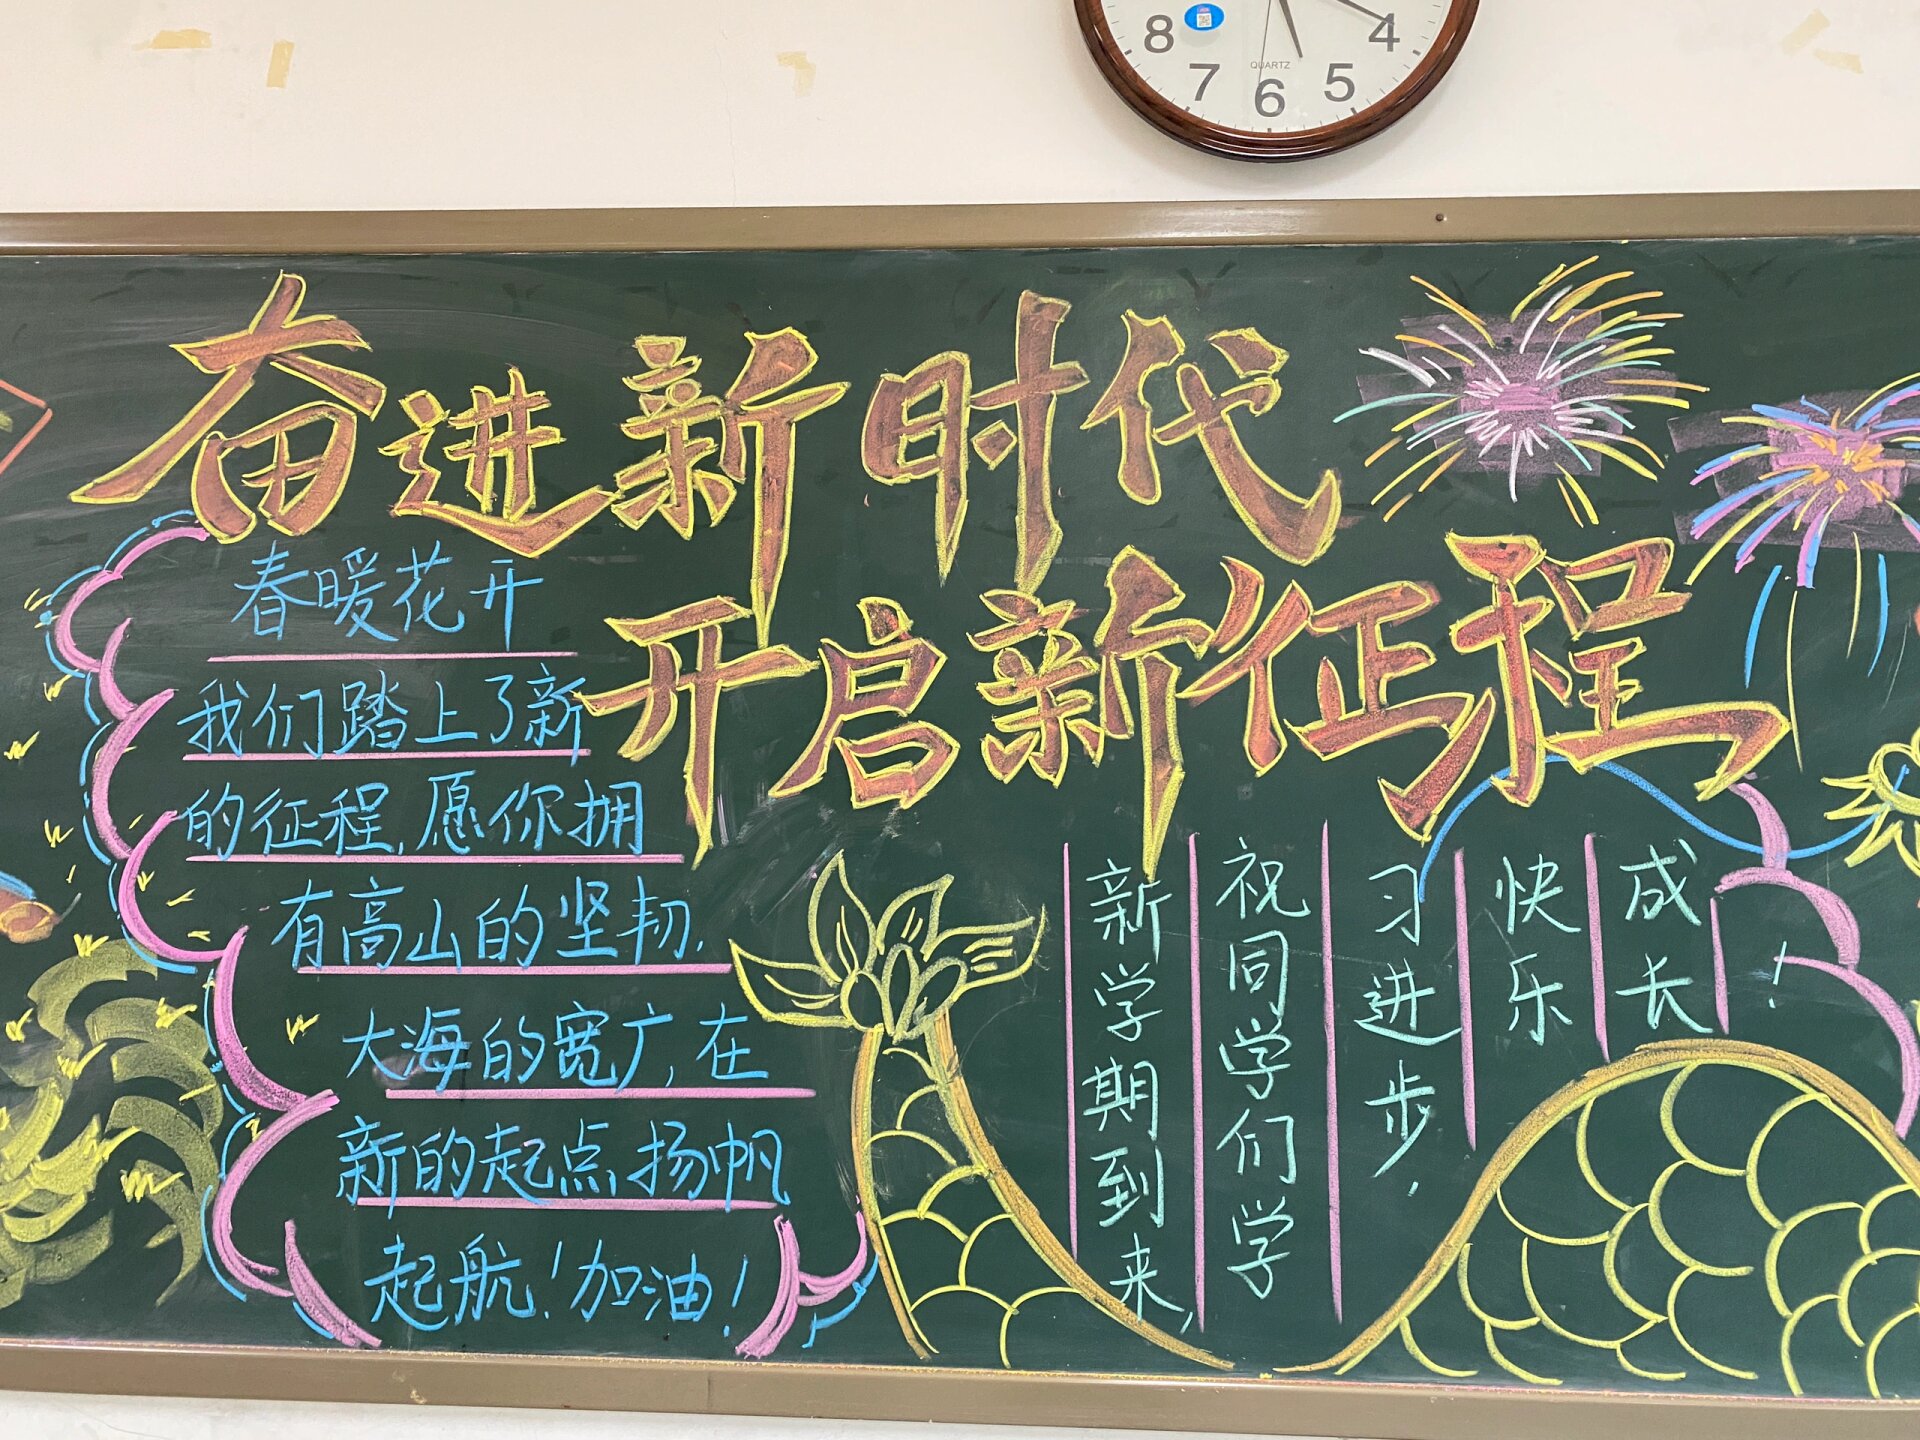 8
4
7
5
6
QUARTZ
奋进新时代
开启新征程
春暖花开
我们踏上了新
的征程,愿你拥
有高山的坚韧,
大海的宽广,在
新的起点扬帆
起航!加油!
新学期到来,
祝同学们学
习进步,
快乐
成长
!